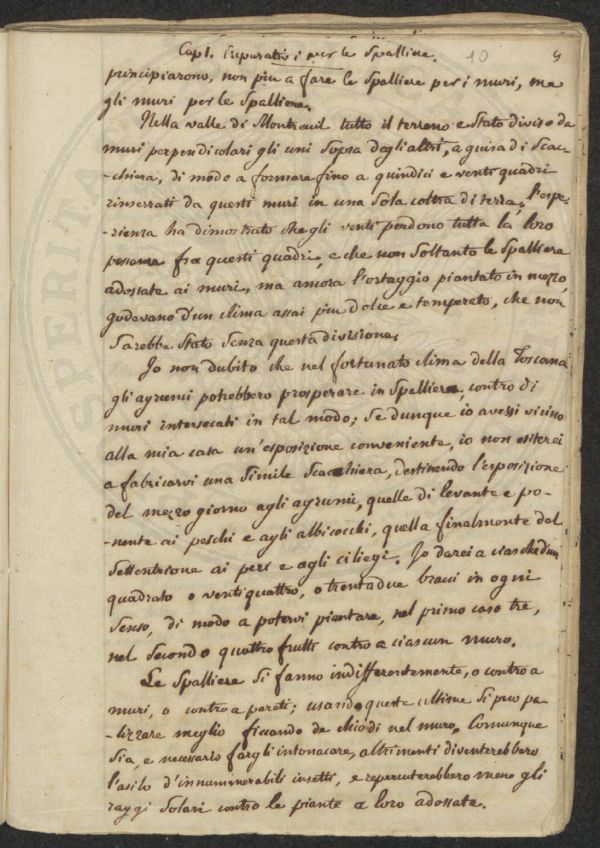 Cap I. Preparativi per le Spalliere. 10 9
principiarono, non piu a fare le Spalliere per i muri, ma
gli muri per le Spalliere.
Nella valle di Montreuil tutto il terreno e Stato diviso da
muri perpendicolari gli uni Sopra degli altri, a guisa di Scac-
-chiera, di modo a formare fino a quindici e venti quadri
rinserrati da questi muri in una Sola coltra di terra; l'espe-
-rienza ha dimostrato che gli venti perdono tutta la loro
possanza fra questi quadri, e che non Soltanto le Spalliere
adossate ai muri, ma ancora l'ortaggio piantato in mezzo,
godevano d'un clima assai piu dolce e temperato, che non
Sarebbe Stato Senza questa divisione.
Io non dubito che nel fortunato clima della Toscana
gli agrumi potrebbero prosperare in Spalliere, contro di
muri intersecati in tal modo; Se dunque io avessi vicino
alla mia casa un'esposizione conveniente, io non esiterei
a fabricarvi una Simile Scachiera, destinando l'esposizione
del mezzo giorno agli agrumi, quelle di levante e po-
-nente ai peschi e agli albicocchi, quella finalmente del
Settentrione ai peri e agli ciliegi. Io darei a ciaschedun
quadrato o ventiquattro, o trentadue bracci in ogni
Senso, di modo a potervi piantare, nel primo caso tre,
nel Secondo quattro frutti contro a ciascun muro.
Le Spalliere Si fanno indifferentemente, o contro a
muri, o contro a pareti; usando queste ultime Si puo pa-
-lizzare meglio ficcando de chiodi nel muro. Comunque
Sia, e necessario fargli intonacare, altrimenti diventerebbero
l'asilo d'innumerabili insetti, e repercuterebbero meno gli
raggi Solari contro le piante a loro adossate.